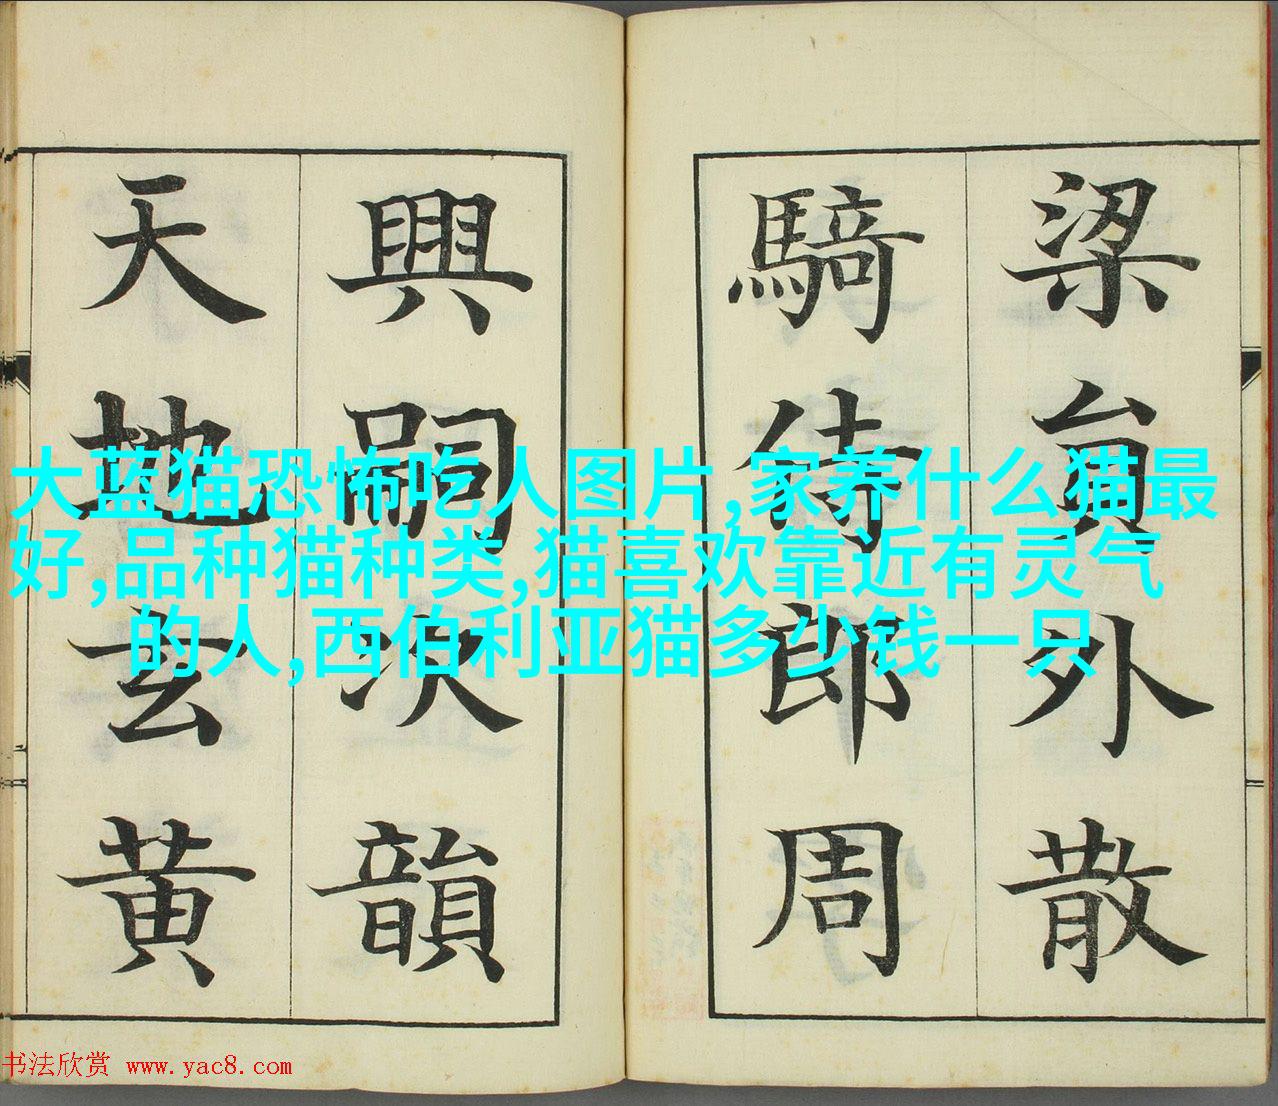 梁貟外散
騎侍郎周
興嗣次韻
天地玄黄
大蓝猫恐怖吃人图片,家养什么猫最
好,品种猫种类,猫喜欢靠近有灵气
的人,西伯利亚猫多少钱一只
书法欣赏 www.yac8.com